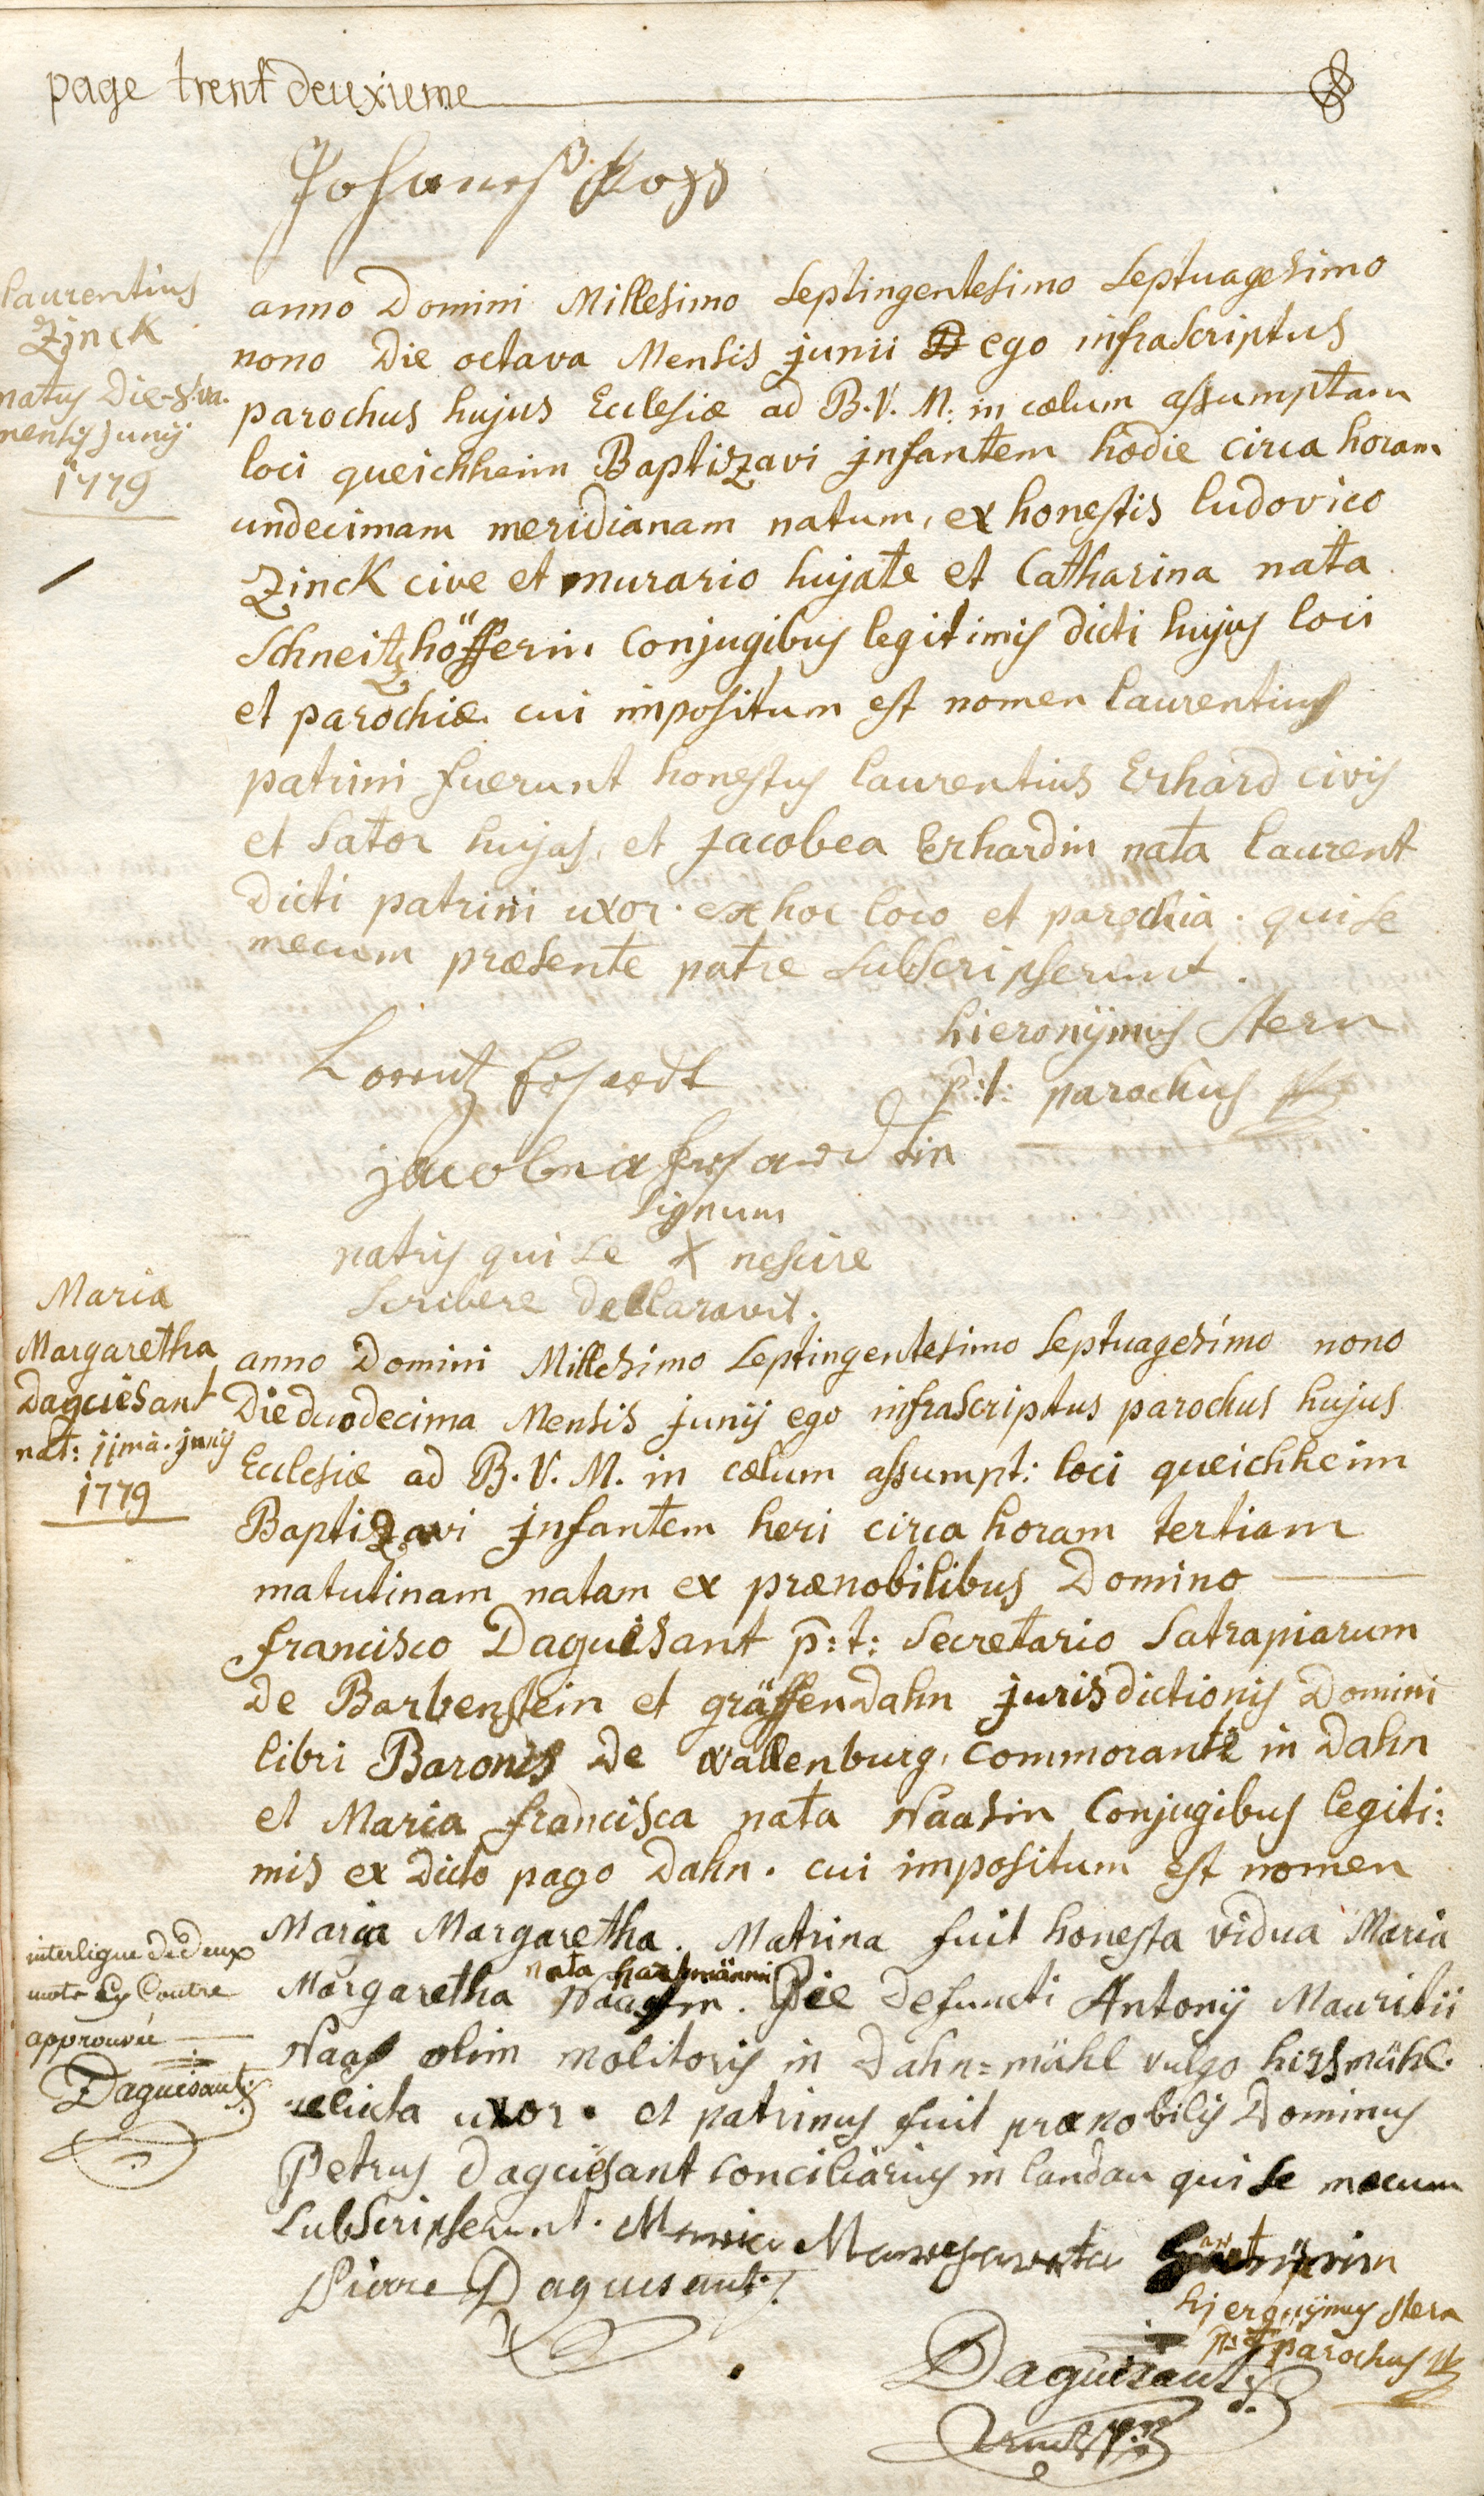 page trent deuxieme
Johanes
laurentius
Zinck
natus Die 8va.
mensis Junij
1779
anno Domini Millesimo Septingentesimo Septuagesimo
nono Die octava Mensis junii ego infrascriptus
parochus hujus Ecclesiæ ad B. V. M. in cœlum assumptam
loci queichheim Baptizavi jnfantem hodie circa horam
undecimam meridianam natum, ex honestis ludovico
Zinck cive et murario hujate et Catharina nata
Schneitzhöfferin Conjugibus legitimis dicti hujus loci
et parochiæ cui impositum est nomen laurentius
patrini fuerunt honestus laurentius Erhard civis
et Sator hujas, et Jacobea Erhardin nata laurent
dicti patrini uxor. ex hoc loco et parochia. qui se
mecum præsente patre subscripserunt.
hieronijmus Stern
p:t: parochus
Lorentz Erhardt
jacobea Erhardtin
Signum
patris qui se X nescire
scribere declaravit.
Maria
Margaretha
Daguesant
nat: jjma. junij
1779
anno Domini Millesimo Septingentesimo Septuagesimo nono
Die duodecima Mensis junij ego infrascriptus parochus hujus
Ecclesiæ ad B. V. M. in cœlum assumpt: loci queichheim
Baptizavi jnfantem heri circa horam tertiam
matutinam natam ex prænobilibus Domino
francisco Daguesant p:t: Secretario Satrapiarum
de Barbenstein et gräffendahn jurisdictionis Domini
libri Baronis de wallenburg, commorante in Dahn
et Maria francisca nata Naasin Conjugibus legiti:
mis ex dicto pago Dahn. cui impositum est nomen
Maria Margaretha. Matrina fuit honesta vidua Maria
nata hartmännin
Margaretha Naasin. Pie defuncti Antonij Mauritii
Naas olim molitoris in Dahn=mühl vulgo hirsmühl.
relicta uxor. et patrinus fuit prænobilis Dominus
Petrus Daguesant conciliarius in landau qui se mecum
subscripserunt. Maria Margareta
interligne de deux
mots Cy Contre
approuvée
Daguesant
Pierre Daguesant
hieronijmus Stern
p:t: parochus
Daguesant